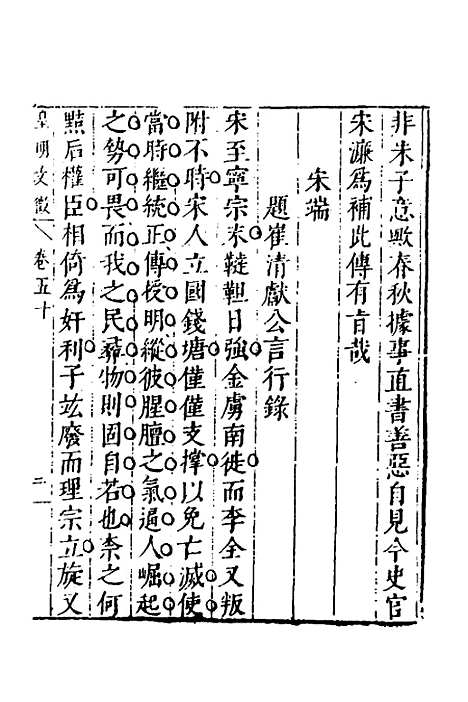 非朱子意歟春秋據事直書善惡自見今史官
宋濂爲補此傳有旨哉
朱瑞
題崔清獻公言行錄
宋至寧宗末韃靼日強金虜南徙而李全又叛
附不時宋人立國錢塘僅僅支撑以免亡滅使
當時繼統正傳授明縱彼腥膻之氣逼人崛起
之勢可畏而我之民彝物則固自若也柰之何
黠后權臣相倚爲奸利子竑廢而理宗立旋又
皇明文徵 卷五十